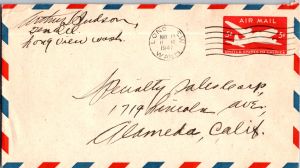 Arthur Hudson,
Longview Wash
LONGVIEW
NOV 17
1947
WASH.
AIR MAIL
5¢ 5¢
UNITED STATES OF AMERICA
Specialty Sales Corp,
1719 Lincoln Ave,
Alameda, Calif.